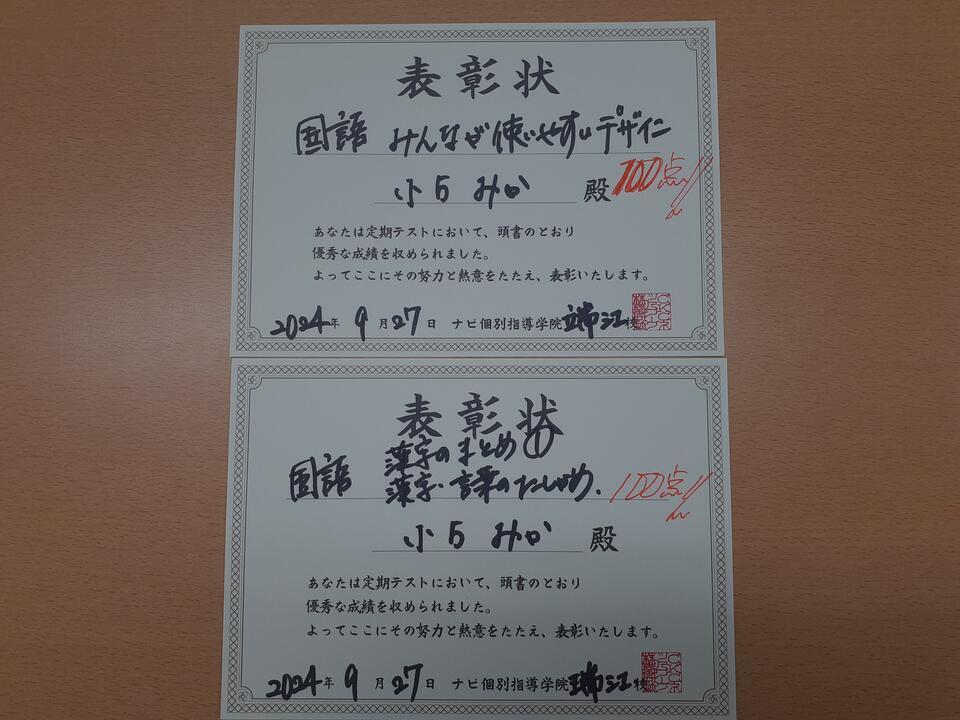 表彰状
国語 みんなが使いやすいデザイン
100点
小5 みか 殿
あなたは定期テストにおいて、頭書のとおり
優秀な成績を収められました。
よってここにその努力と熱意をたたえ、表彰いたします。
2024年 9月27日 ナビ個別指導学院瑞江校
表彰状
漢字のまとめ①
国語 漢字・言葉のたしかめ.
100点
小5 みか 殿
あなたは定期テストにおいて、頭書のとおり
優秀な成績を収められました。
よってここにその努力と熱意をたたえ、表彰いたします。
2024年 9月27日 ナビ個別指導学院瑞江校